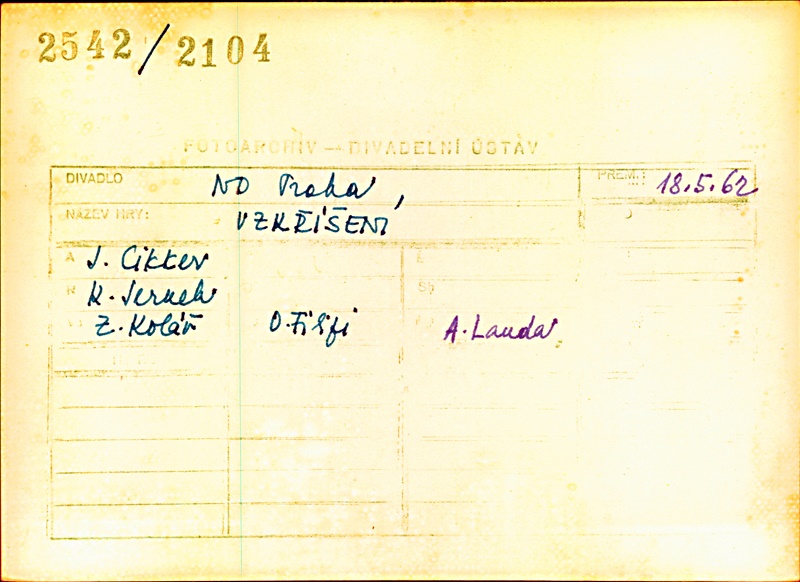 2542/2104
FOTOARCHIV — DIVADELNÍ ÚSTAV
DIVADLO ND Praha, PREM.: 18.5.62
NÁZEV HRY: VZKŘÍŠENÍ
A J. Cikker
R K. Jernek
Z. Kolář O. Filipi A. Landa